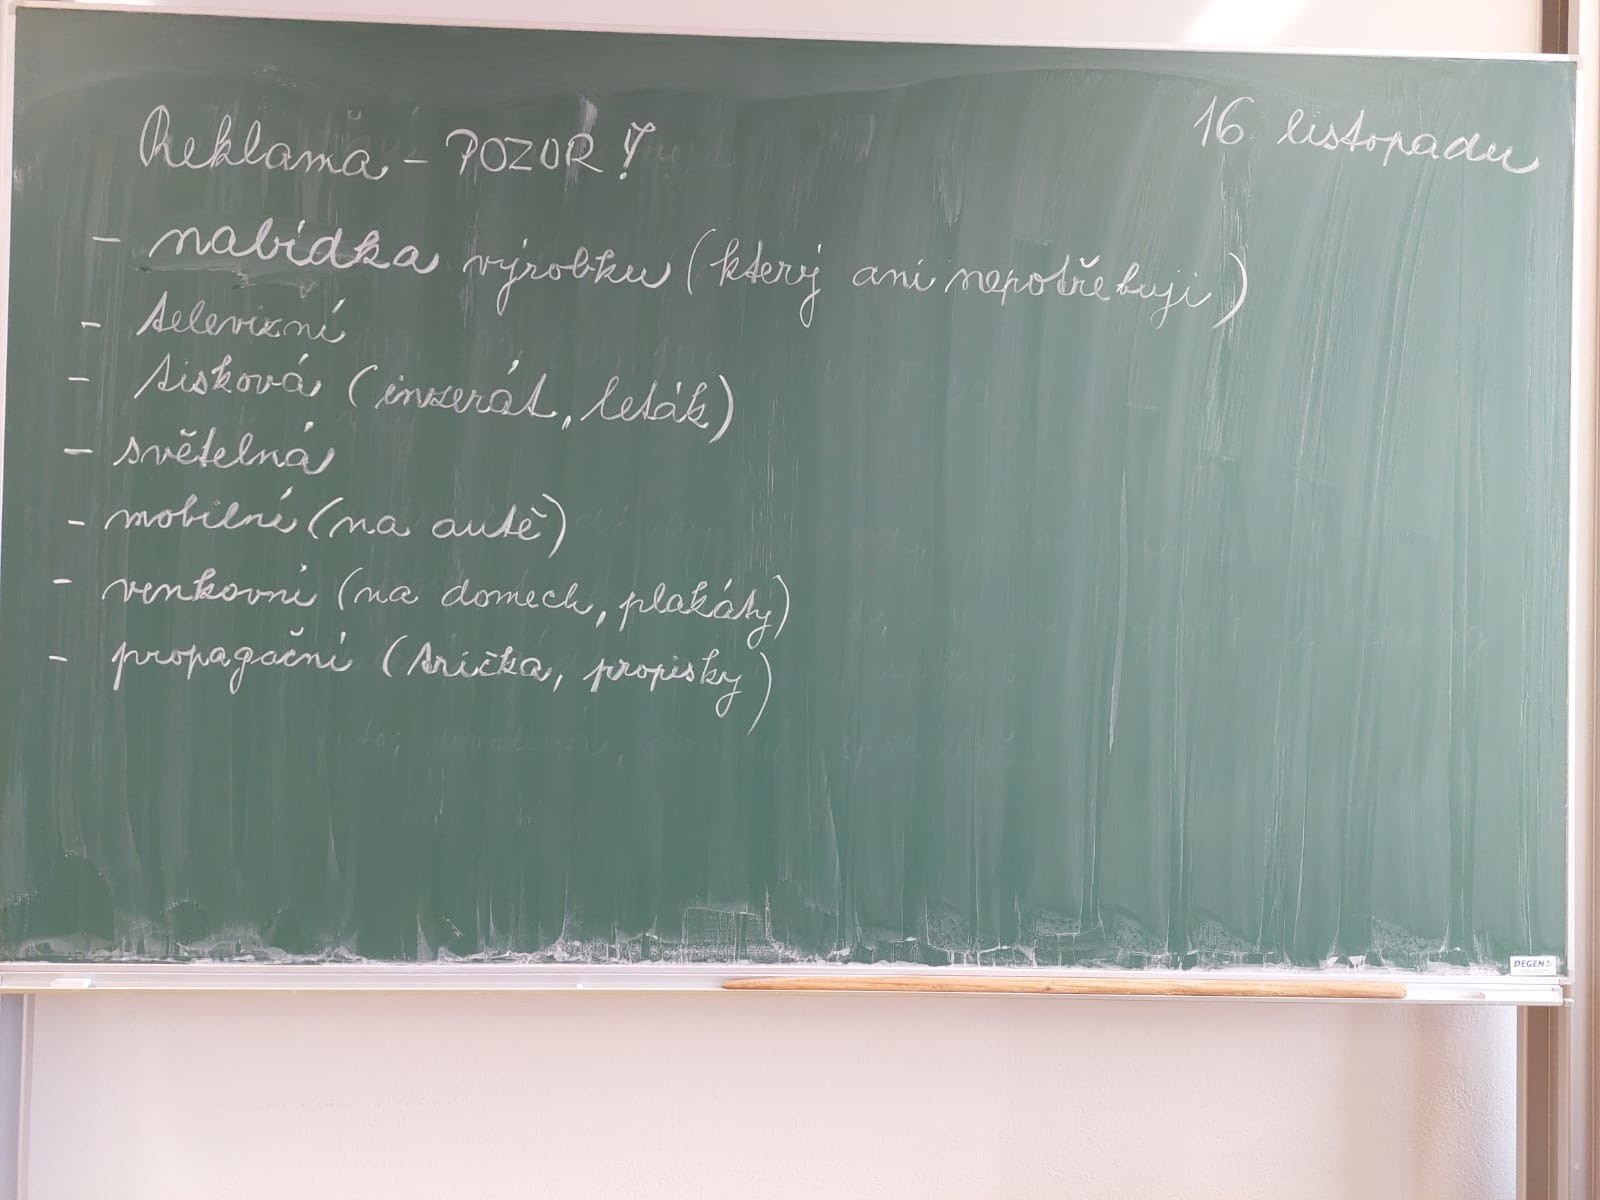 Reklama - POZOR!
16. listopadu
- nabídka výrobku (který ani nepotřebuji)
- televizní
- tisková (inzerát, leták)
- světelná
- mobilní (na autě)
- venkovní (na domech, plakáty)
- propagační (trička, propisky)
DEGEN